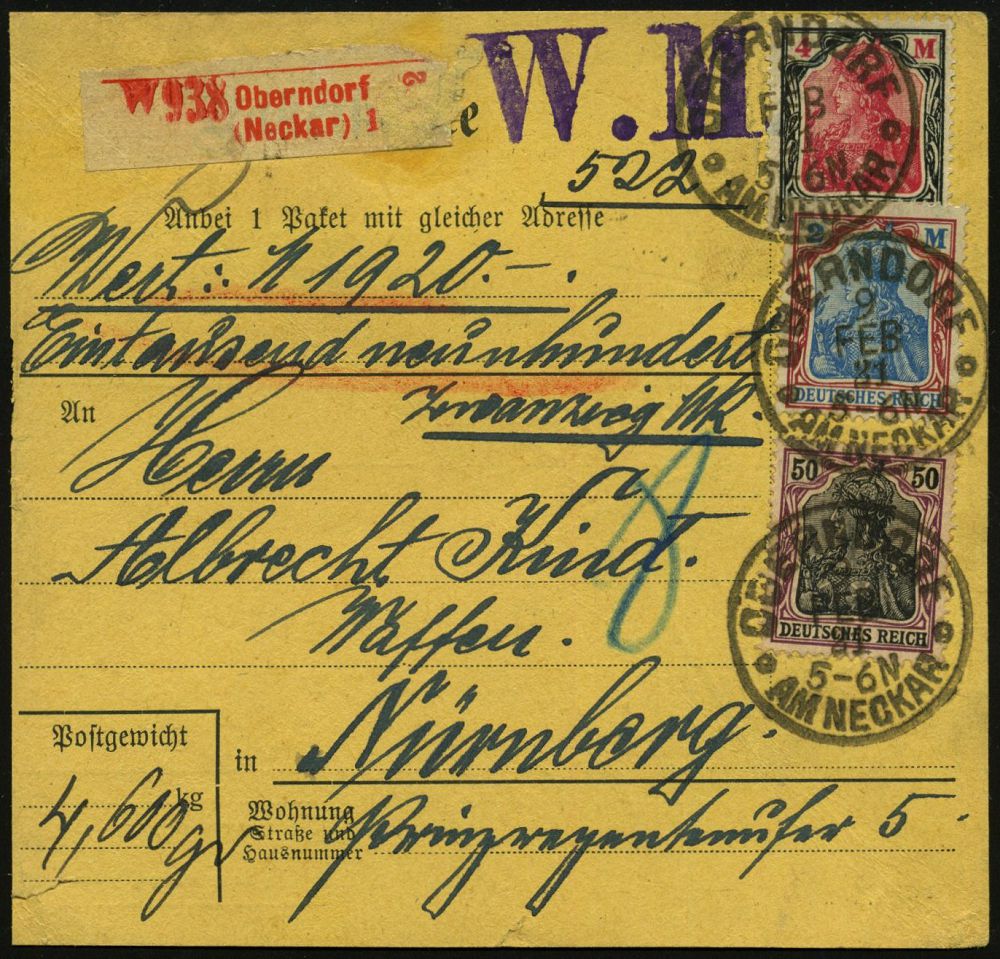 W 938 Oberndorf 2
(Neckar) 1
W.M
522
Anbei 1 Paket mit gleicher Adresse
Wert: M 1920.-.
Eintausend neunhundert
zwanzig Mk.
An
Herrn
Albrecht Kind.
Waffen.
in Nürnberg.
Postgewicht
kg
4,600 g
Wohnung
Straße und
Hausnummer
Prinzregentenufer 5.
8
4 M
OBERNDORF
FEB
5-6N
AM NECKAR
2 M
DEUTSCHES REICH
OBERNDORF
9
FEB
21
5-6N
AM NECKAR
50 50
DEUTSCHES REICH
OBERNDORF
FEB
21
5-6N
AM NECKAR